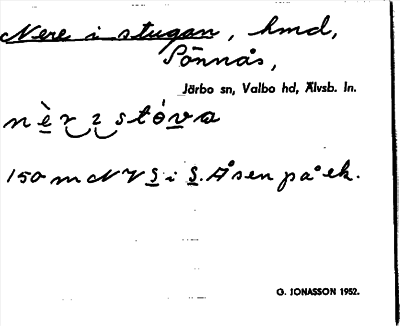 Nere i stugan, hmd,
Sönnås,
Järbo sn, Valbo hd, Älvsb. ln.
nè̱r ɩ stó̱va
150 m NV S̱ i S̱. Åsen på ek.
G. JONASSON 1952.